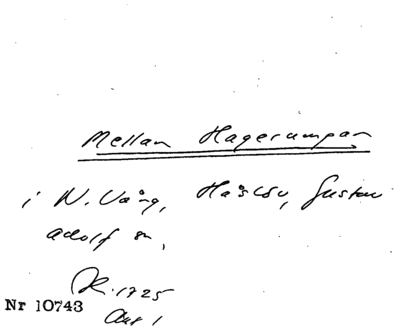 Mellan Hagerumpan
i N. Vång, Haslöv, Gustav
adolf sn,
R. 1725
Nr 10743
Akt 1